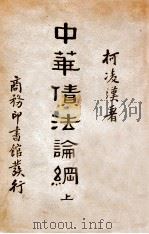 柯凌漢著
中華債法論綱 上
商務印書館發行